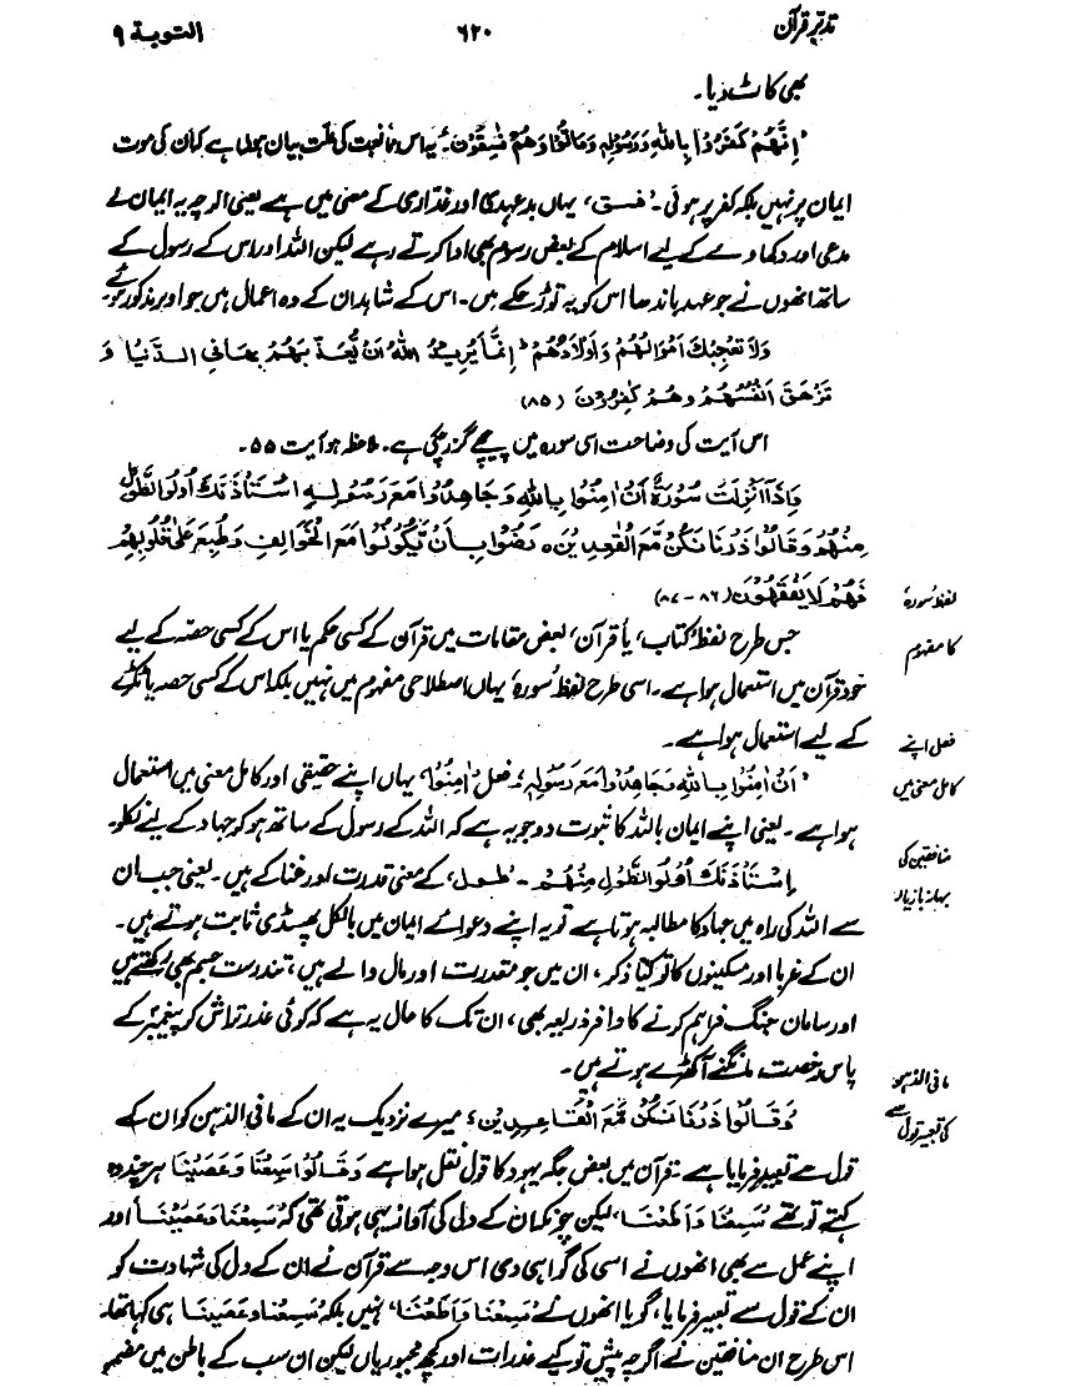 تدبرِ قرآن
۶۲۰
التوبة ۹
بھی کاٹ دیا۔
'اِنَّهُمْ كَفَرُوْا بِاللّٰهِ وَرَسُوْلِهٖ وَمَاتُوْا وَهُمْ فٰسِقُوْنَ'۔ یہ اس ممانعت کی علت بیان ہوئی ہے کہ ان کی موت
ایمان پر نہیں بلکہ کفر پر ہوئی۔ 'فسق' یہاں بدعہدی اور غداری کے معنی میں ہے یعنی اگرچہ یہ ایمان کے
مدعی اور دکھاوے کے لیے اسلام کے بعض رسوم بھی ادا کرتے رہے لیکن اللہ اور اس کے رسول کے
ساتھ انھوں نے جو عہد باندھا اس کو یہ توڑ چکے ہیں۔ اس کے شاہد ان کے وہ اعمال ہیں جو اوپر مذکور ہوئے۔
وَلَا تُعْجِبْكَ اَمْوَالُهُمْ وَاَوْلَادُهُمْ ؕ اِنَّمَا يُرِيْدُ اللّٰهُ اَنْ يُّعَذِّبَهُمْ بِهَا فِی الدُّنْيَا وَ
تَزْهَقَ اَنْفُسُهُمْ وَهُمْ كٰفِرُوْنَ (۸۵)
اس آیت کی وضاحت اسی سورہ میں پیچھے گزر چکی ہے۔ ملاحظہ ہو آیت ۵۵۔
وَاِذَآ اُنْزِلَتْ سُوْرَةٌ اَنْ اٰمِنُوْا بِاللّٰهِ وَجَاهِدُوْا مَعَ رَسُوْلِهِ اسْتَاْذَنَكَ اُولُوا الطَّوْلِ
مِنْهُمْ وَقَالُوْا ذَرْنَا نَكُنْ مَّعَ الْقٰعِدِيْنَ ه رَضُوْا بِاَنْ يَّكُوْنُوْا مَعَ الْخَوَالِفِ وَطُبِعَ عَلٰى قُلُوْبِهِمْ
فَهُمْ لَا يَفْقَهُوْنَ (۸۶-۸۷)
لفظ 'سورہ'
کا مفہوم
جس طرح لفظ 'کتاب' یا 'قرآن' بعض مقامات میں قرآن کے کسی حکم یا اس کے کسی حصہ کے لیے
خود قرآن میں استعمال ہوا ہے۔ اسی طرح لفظ 'سورہ' یہاں اصطلاحی مفہوم میں نہیں بلکہ اس کے کسی حصہ یا ٹکڑے
کے لیے استعمال ہوا ہے۔
فعل اپنے
کامل معنی میں
'اَنْ اٰمِنُوْا بِاللّٰهِ وَجَاهِدُوْا مَعَ رَسُوْلِهٖ'، فعل 'اٰمِنُوْا' یہاں اپنے حقیقی اور کامل معنی میں استعمال
ہوا ہے۔ یعنی اپنے ایمان باللہ کا ثبوت دو جو یہ ہے کہ اللہ کے رسول کے ساتھ ہو کر جہاد کے لیے نکلو۔
منافقین کی
بہانہ بازیاں
'اِسْتَاْذَنَكَ اُولُوا الطَّوْلِ مِنْهُمْ'۔ 'طول' کے معنی قدرت اور غنا کے ہیں۔ یعنی جب ان
سے اللہ کی راہ میں جہاد کا مطالبہ ہوتا ہے تو یہ اپنے دعوائے ایمان میں بالکل پھسڈی ثابت ہوتے ہیں۔
ان کے غربا اور مسکینوں کا تو کیا ذکر، ان میں جو مقدرت اور مال والے ہیں، تندرست جسم بھی رکھتے ہیں
اور سامان جنگ فراہم کرنے کا وافر ذریعہ بھی، ان تک کا حال یہ ہے کہ کوئی عذر تراش کر پیغمبرؐ کے
پاس رخصت مانگنے آ کھڑے ہوتے ہیں۔
مافی الذہن
کی تعبیر قول سے
'وَقَالُوْا ذَرْنَا نَكُنْ مَّعَ الْقَاعِدِيْنَ' میرے نزدیک یہ ان کے مافی الذہن کو ان کے
قول سے تعبیر فرمایا ہے۔ قرآن میں بعض جگہ یہود کا قول نقل ہوا ہے 'وَقَالُوْا سَمِعْنَا وَعَصَيْنَا' ہرچند وہ
کہتے تو تھے 'سَمِعْنَا وَاَطَعْنَا'، لیکن چونکہ ان کے دل کی آواز یہی ہوتی تھی کہ 'سَمِعْنَا وَعَصَيْنَا' اور
اپنے عمل سے بھی انھوں نے اسی کی گواہی دی اس وجہ سے قرآن نے ان کے دل کی شہادت کو
ان کے قول سے تعبیر فرمایا، گویا انھوں نے 'سَمِعْنَا وَاَطَعْنَا' نہیں بلکہ 'سَمِعْنَا وَعَصَيْنَا' ہی کہا تھا۔
اس طرح ان منافقین نے اگرچہ پیش تو کیے عذرات اور کچھ مجبوریاں لیکن ان سب کے باطن میں مضمر